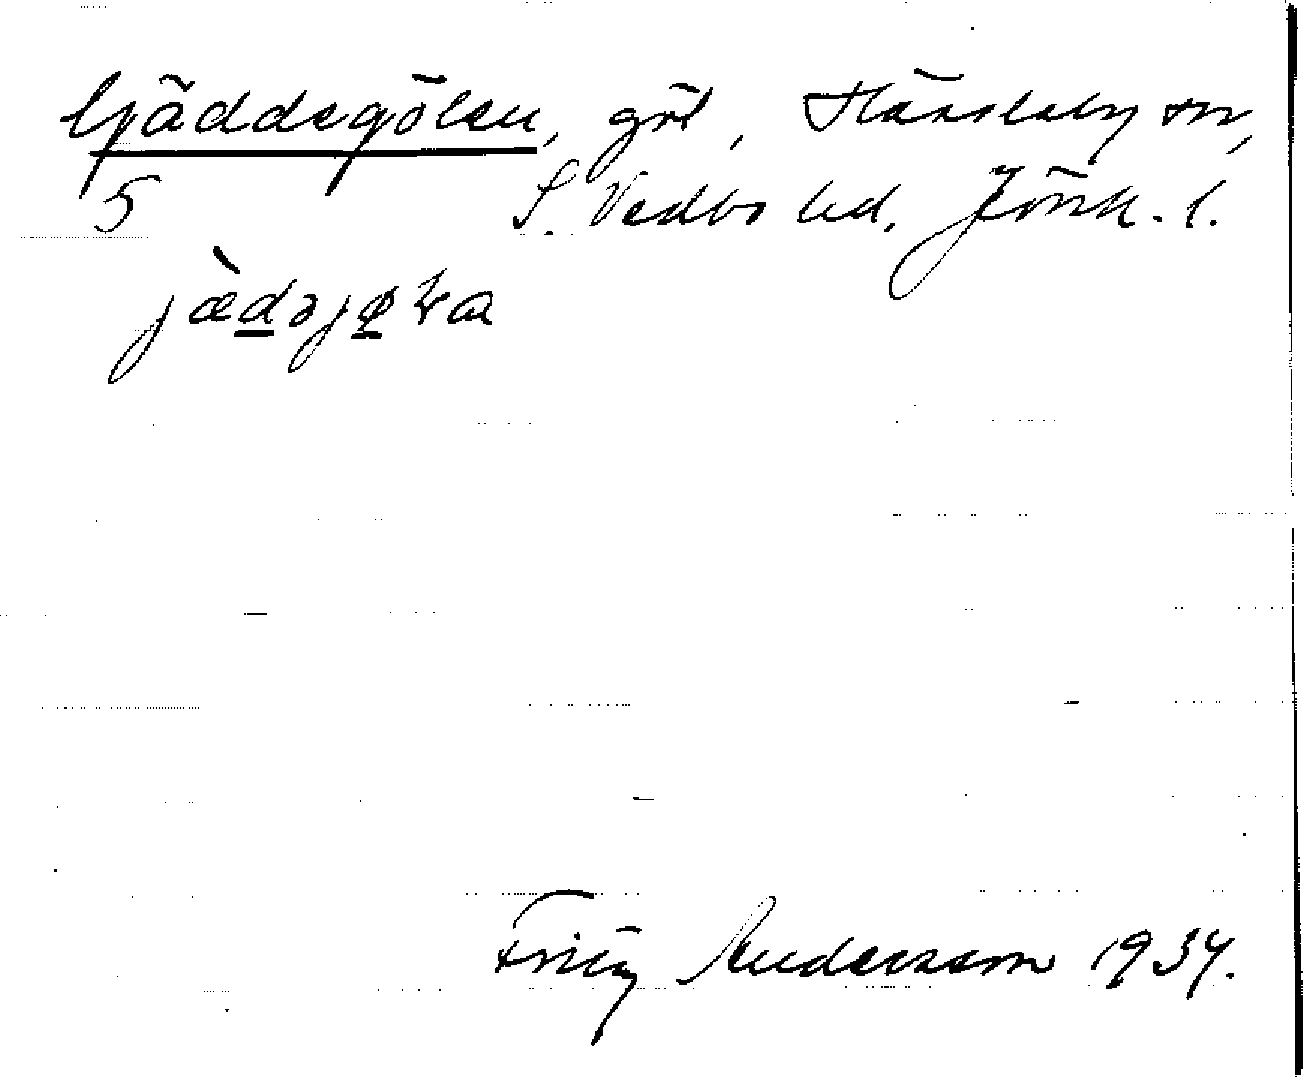 Gäddegölen, göl, Hässleby sn,
5 S. Vedbo hd, Jönk. l.
jæ̀dəjøḷa
Fritz Andersson 1934.